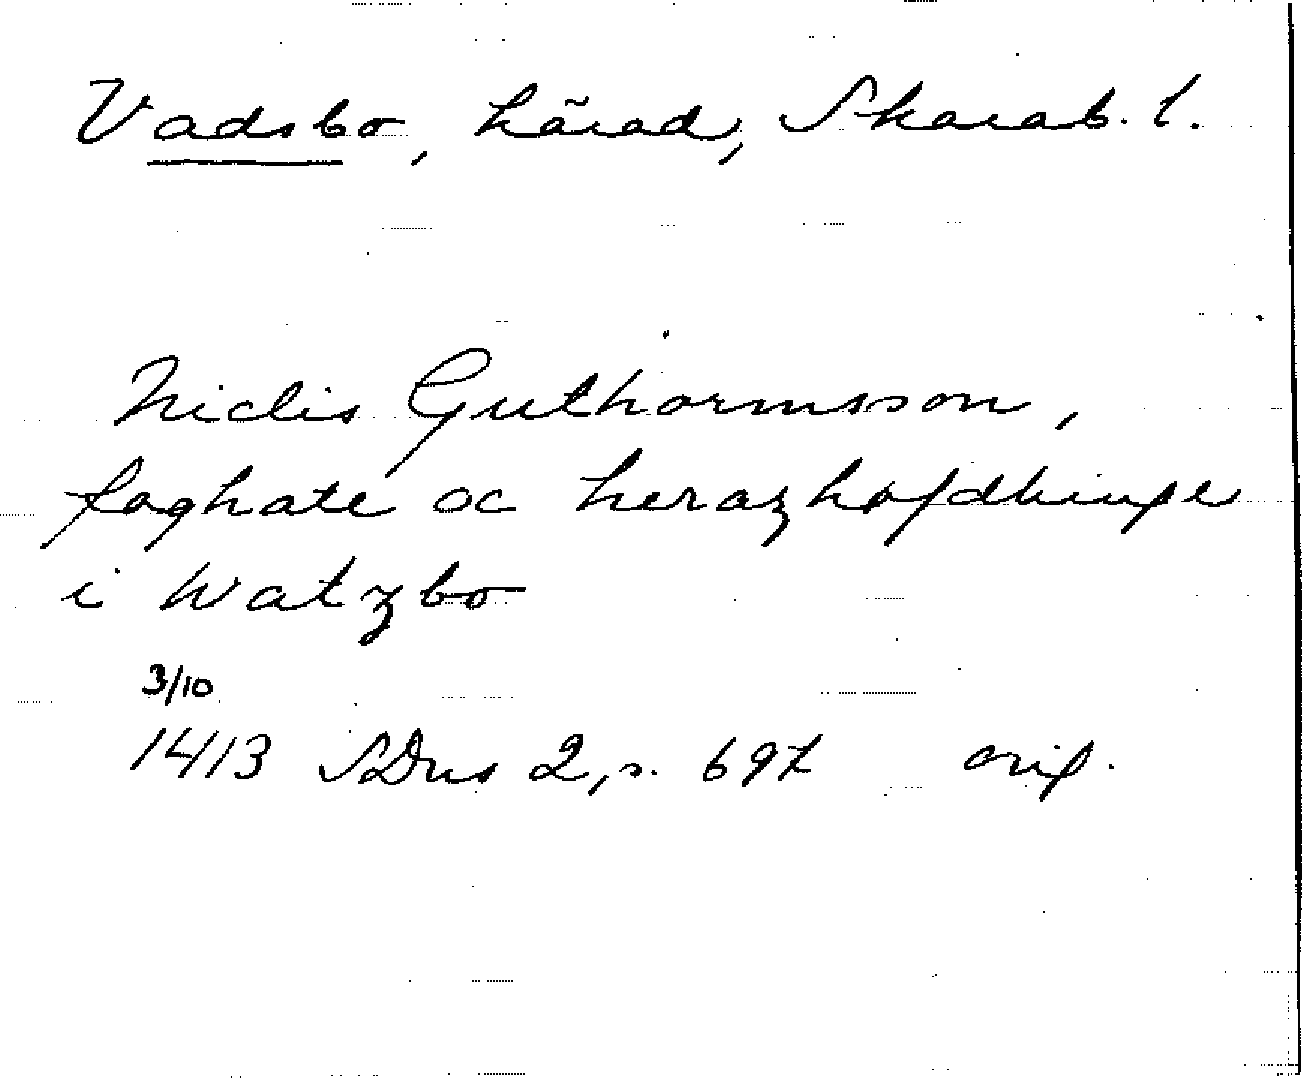 Vadsbo, härad, Skarab. l.
Niclis Guthormsson,
foghate oc herazhofdhinge
i Watzbo
3/10
1413 SDns 2, s. 697 orig.